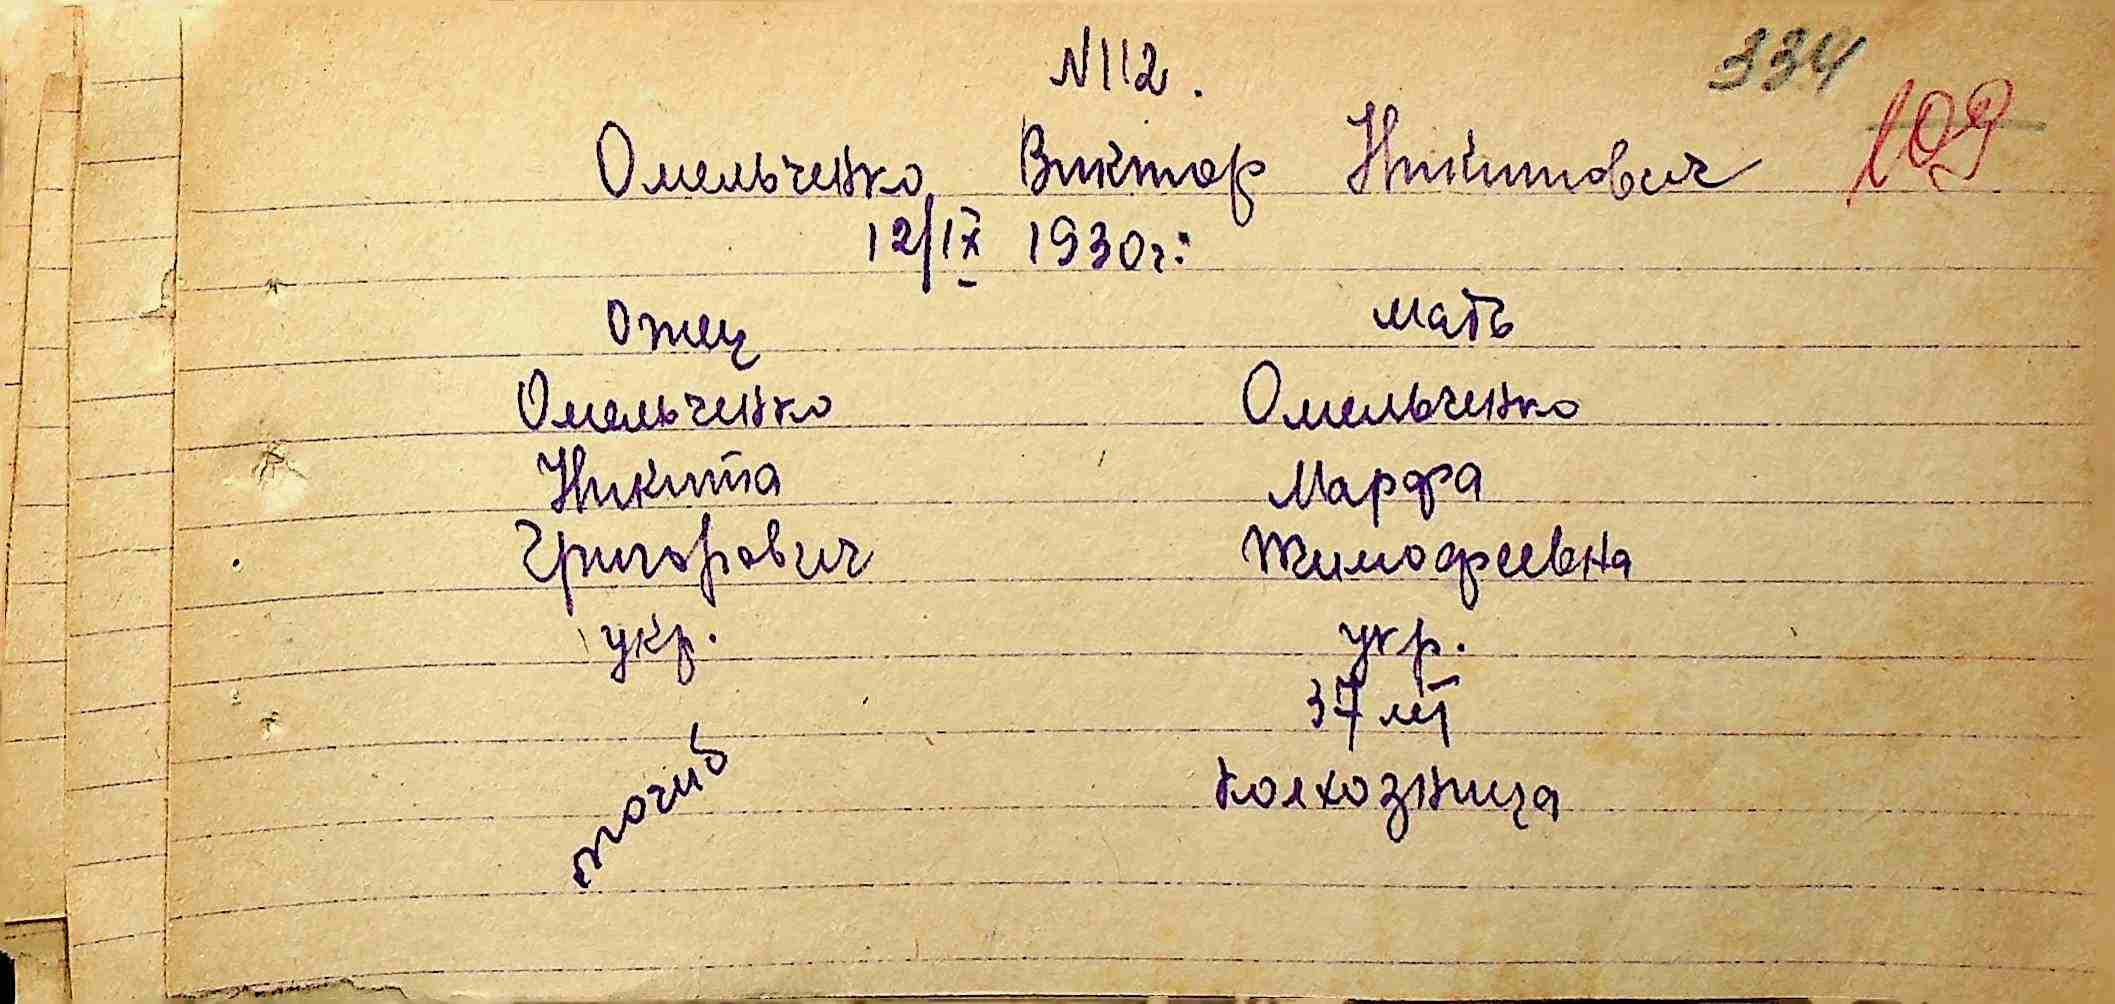 334
109
N 112.
Омельченко Виктор Никитович
12/IX 1930г.
Отец Мать
Омельченко Омельченко
Никита Марфа
Григорович Тимофеевна
укр. укр.
37 лет
погиб колхозница